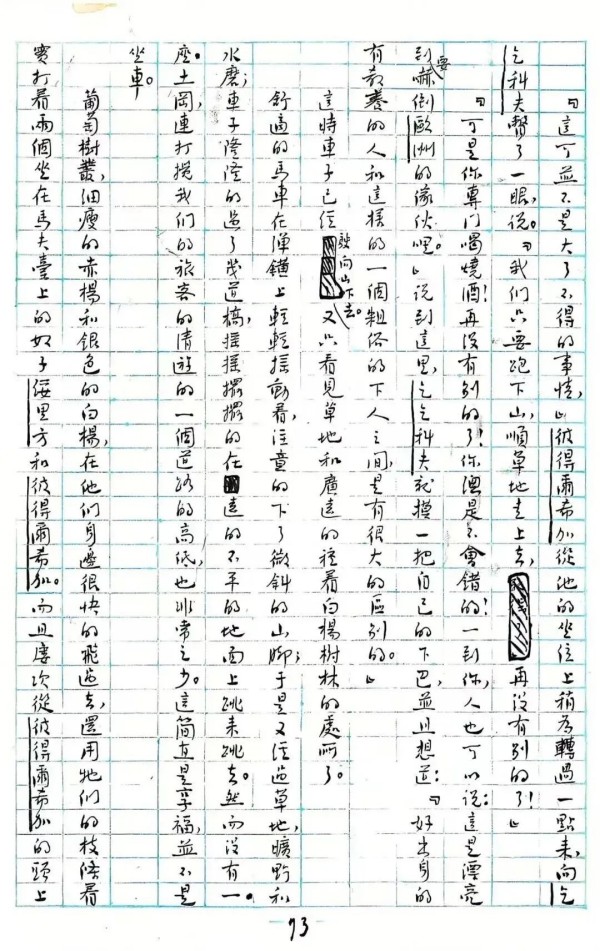 『這可並不是大了不得的事情，』彼得爾希加從他的坐位上稍為轉過一點來，向乞
乞科夫瞥了一眼，說。『我們只要跑下山，順草地走上去，再沒有別的了！』
『可是你專門喝燒酒！再沒有別的了！你總是不會錯的！一到你，人也可以說：這是漂亮
到要嚇倒歐洲的傢伙哩。』說到這里，乞乞科夫就摸一把自己的下巴，並且想道：『好出身的
有教養的人和這樣的一個粗俗的下人之間，是有很大的區別的。』
這時車子已經駛向山下去。又只看見草地和廣遠的種着白楊樹林的處所了。
舒適的馬車在彈鐄上輕輕搖動着，注意的下了微斜的山腳；于是又經過草地，曠野和
水磨；車子隆隆的過了幾道橋，搖搖擺擺的在遠的不平的地面上跳來跳去。然而沒有一
座土岡，連打攪我們的旅客的清遊的一個道路的高低，也非常之少。這簡直是享福，並不是
坐車。
葡萄樹叢，細瘦的赤楊和銀色的白楊，在他們身邊很快的飛過去，還用牠們的枝條着
實打着兩個坐在馬夫臺上的奴子綏里方和彼得爾希加。而且屢次從彼得爾希加的頭上
73